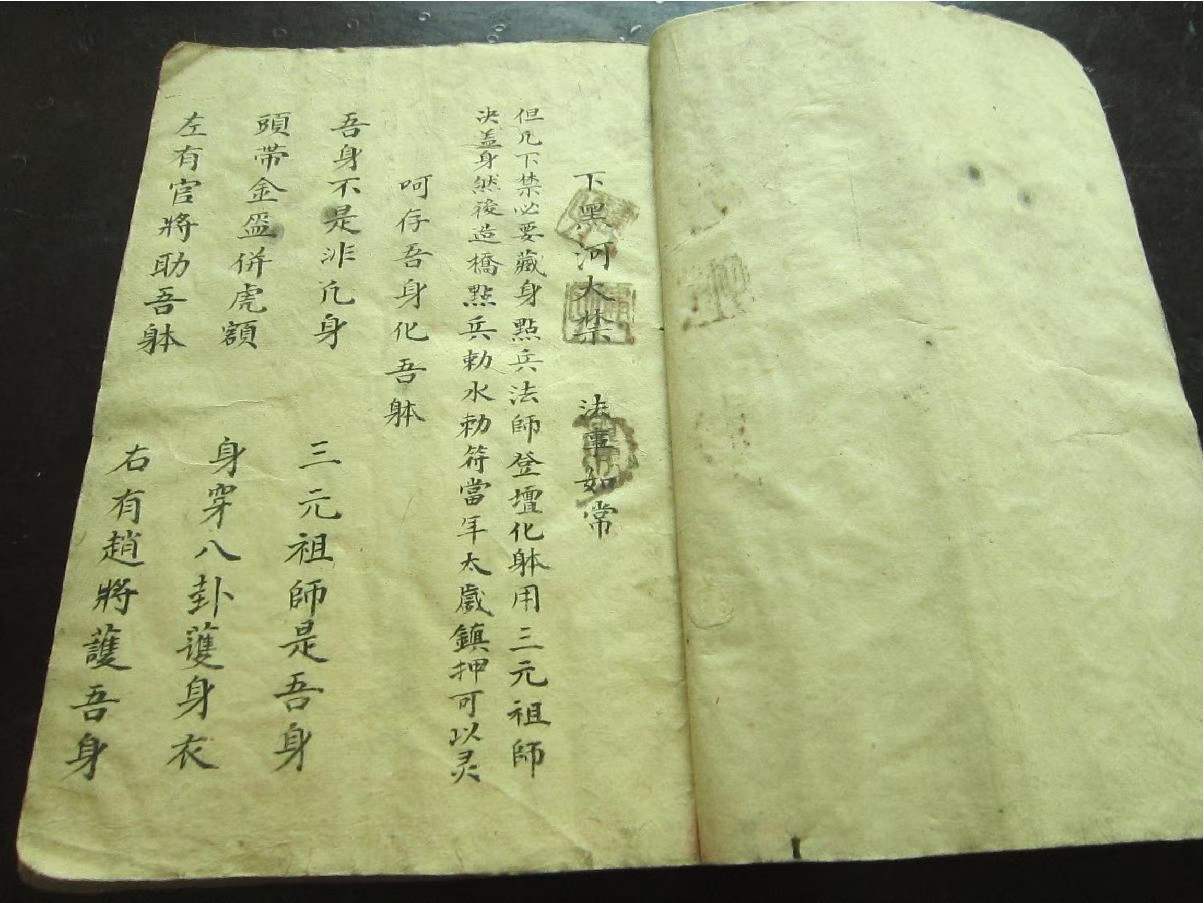 下黑河大禁　法事如常
但凡下禁必要藏身點兵法師登壇化躰用三元祖師
决盖身然後造橋點兵勅水勅符當年太歲鎮押可以灵
呵存吾身化吾躰
吾身不是非凢身　三元祖師是吾身
頭帶金盔併虎額　身穿八卦護身衣
左有官將助吾躰　右有趙將護吾身